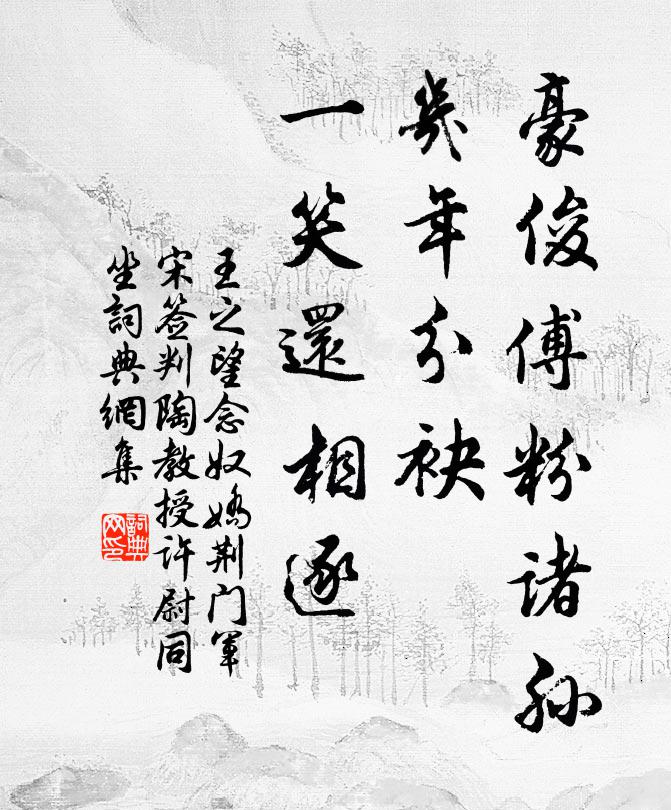 豪俊傅粉诸孙
几年分袂
一笑還相逐
王之望念奴娇荆门軍
宋签判陶教授许尉同
坐詞典網集
詞典网印